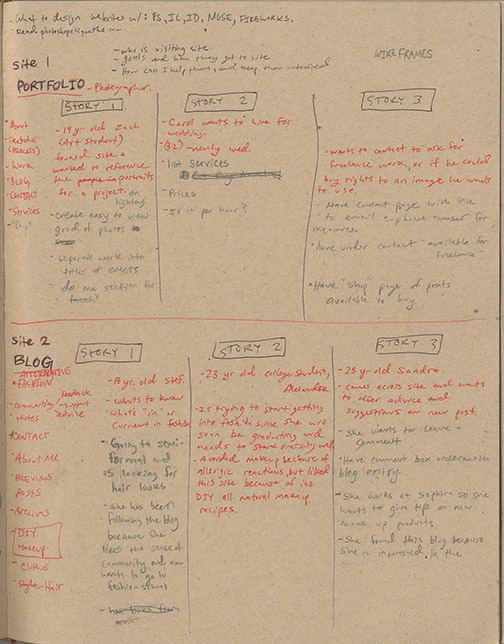 - What to design websites w/: PS, IL, ID, MUSE, FIREWORKS,
- Read photoshopetiquette
- who is visiting site
- goals and how they got to site
- How can I help them, and keep them interested
WIREFRAMES
Site 1
PORTFOLIO - Photographer
About
sketches
(process)
Work
BLOG
CONTACT
Services
STORY 1
- 19 yr. old Zach
(Art Student)
found site &
wanted to reference
the people in portraits
for a project on
lighting
- create easy to view
grid of photos
- seperate work into
titles of events
- do one section for
faces?
STORY 2
- Carol wants to hire for
wedding.
(32) - newly wed.
- list services
- Prices
- Is it per hour?
STORY 3
- wants to contact to ask for
freelance work, or if he could
buy rights to an image he wants
to use.
- Have contact page with link
to email & phone number for
inquiries.
- have under contact "available for
freelance"
- Have "shop" page of prints
available to buy.
Site 2
BLOG
ALTERNATIVE
FASHION
- community
- photos
feedback
support
advice
CONTACT
About ME
Previous
Posts
Archives
- DIY
Makeup
- Cloths
- Style-Hair
STORY 1
- 18 yr. old Stef.
- wants to know
what's "in" or
current in fashion
- Going to semi-
formal and
is looking for
hair looks
- she has been
following the blog
because she
likes the sense of
community and now
wants to go to
fashion school
STORY 2
- 23 yr old college student,
Alexandra
- Is trying to start getting
into fashion since she will
soon be graduating and
needs to start dressing well
- avoided makeup because of
allergic reactions, but liked
this site because of its
DIY all natural makeup
recipes.
STORY 3
- 25 yr. old Sandra.
- comes across site and wants
to offer advice and
suggestions on new post.
- She wants to leave a
comment
- Have comment box underneath
blog entry.
- She works at Sephora so she
wants to give tips on new
make up products.
- She found this blog because
she is interested in the